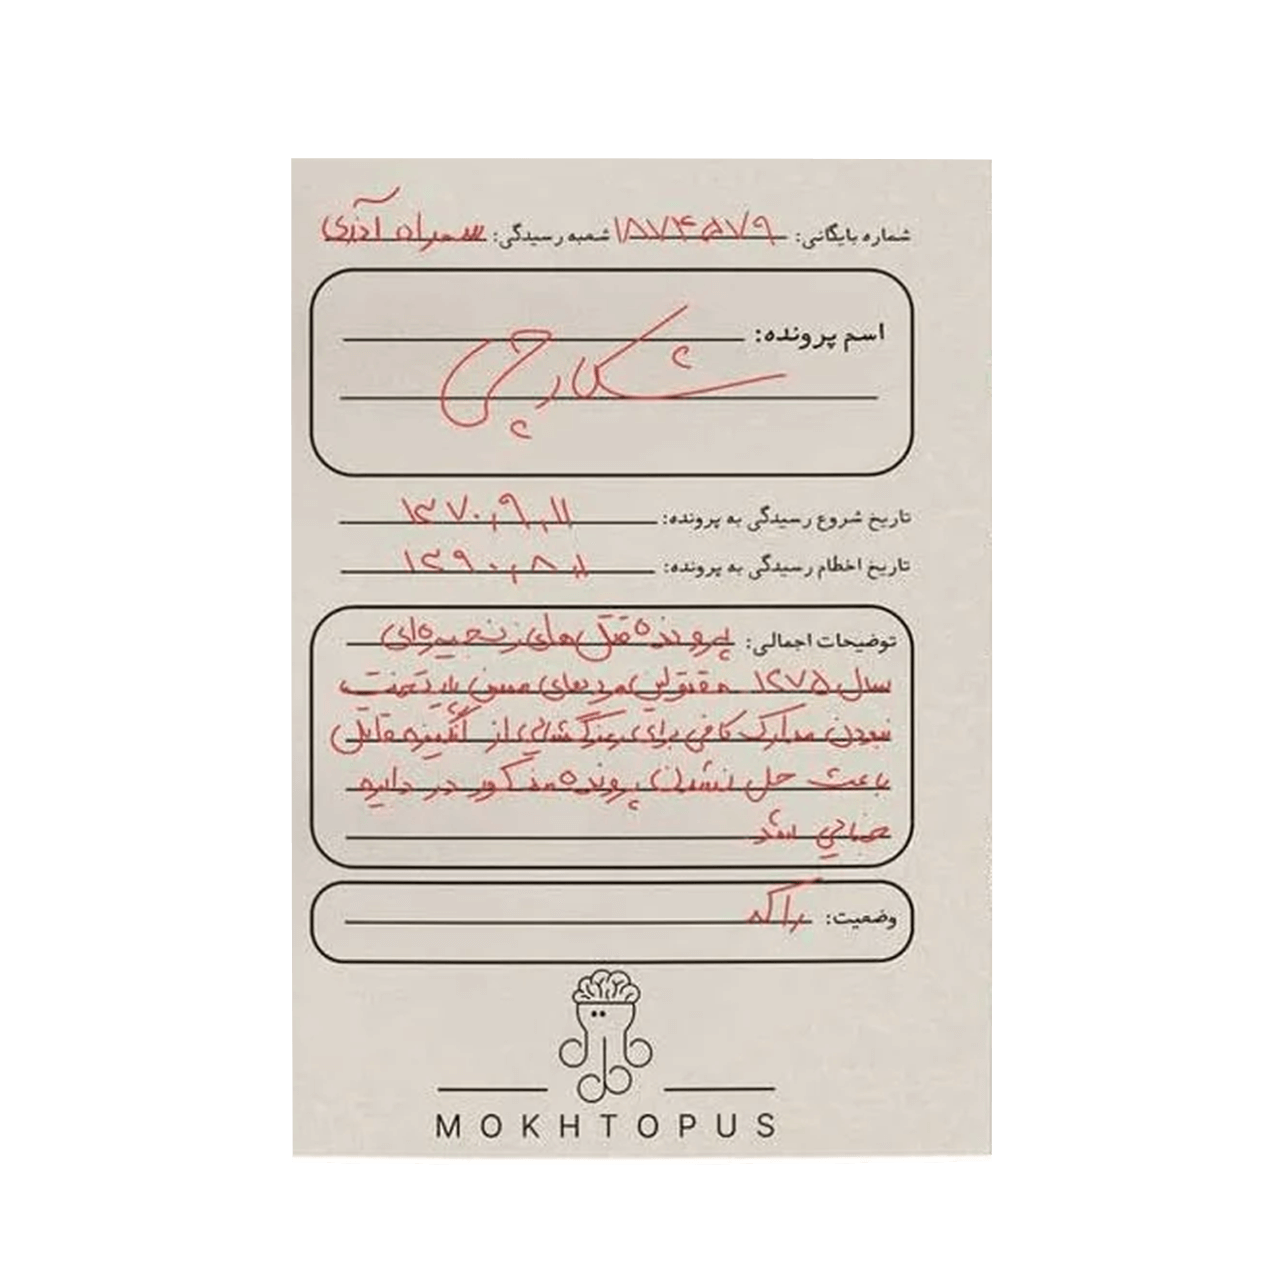 شماره بایگانی: ۱۸۷۴۵۷۹ شعبه رسیدگی: سمراه آذری
اسم پرونده:
شکارچی
تاریخ شروع رسیدگی به پرونده: ۱۳۷۰،۹،۱۱
تاریخ اخطام رسیدگی به پرونده: ۱۳۹۰،۸،۱
توضیحات اجمالی: پرونده قتل‌های زنجیره‌ای
سال ۱۳۷۵ مقتولین مردهای مسن پایتخت
نبودن مدارک کافی برای رمزگشایی از انگیزه قاتل
باعث حل نشدن پرونده مذکور در دایره
جنایی شد
وضعیت: راکد
MOKHTOPUS